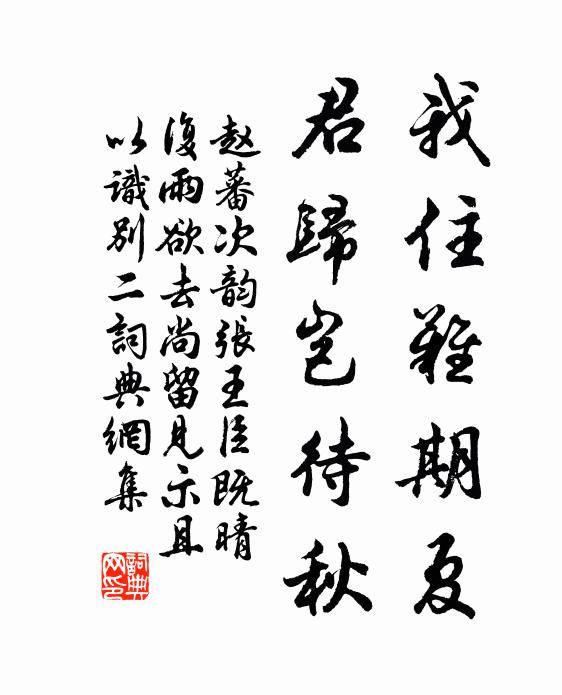 我住難期夏
君歸豈待秋
赵蕃次韵張王臣既晴
復雨欲去尚留見示且
以識别二詞典網集
詞典網印